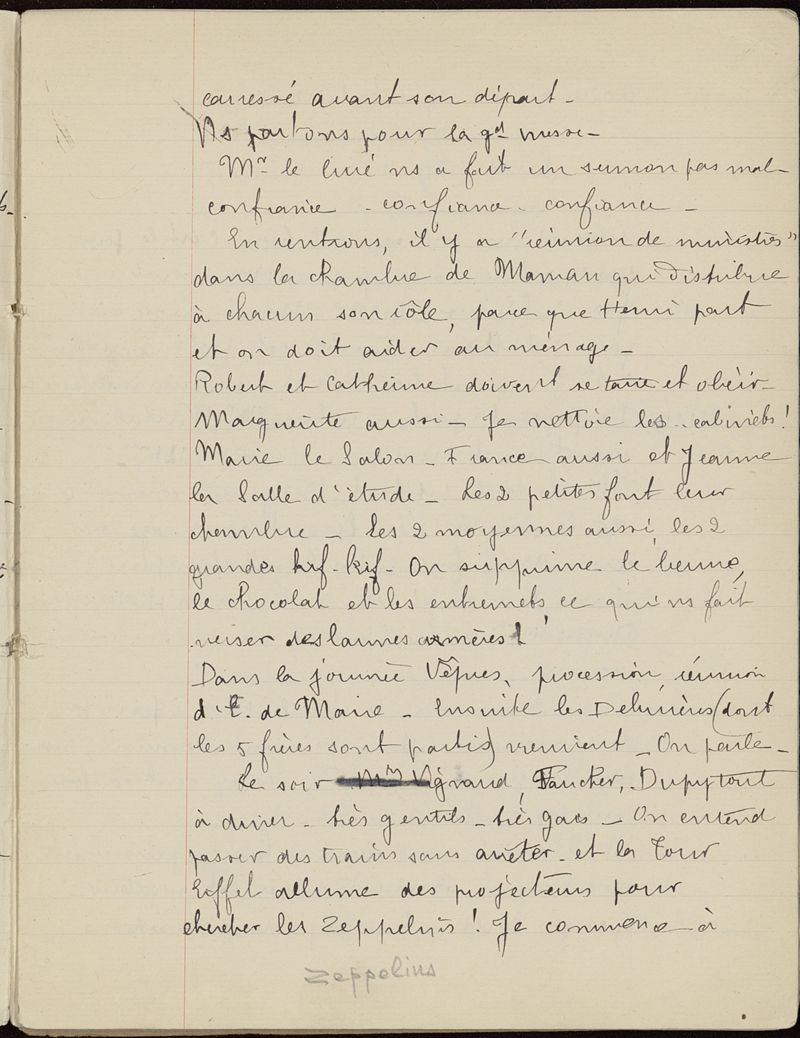 caressé avant son départ -
Ns partons pour la gd messe -
Mr le Curé ns a fait un sermon pas mal -
confiance - confiance - confiance -
En rentrons, il y a "réunion de ministres"
dans la chambre de Maman qui distribue
à chacun son rôle, parce que Henri part
et on doit aider au ménage -
Robert et Catherine doivent se taire et obéir -
Marguerite aussi - Je nettoie les cabinets !
Marie le Salon - France aussi et Jeanne
la Salle d'étude - Les 2 petites font leur
chambre - les 2 moyennes aussi, les 2
grandes kif-kif - On supprime le beurre,
le chocolat et les entremets ce qui ns fait
verser des larmes amères !
Dans la journée Vêpres, procession, réunion
d'E. de Marie - Ensuite les (dont
les 5 frères sont partis) viennent - On parle -
Le soir Mrs Vigrand, Faucher, Dupytout
à dîner - très gentils - très gais - On entend
passer des trains sans arrêter - et la Tour
Eiffel allume des projecteurs pour
chercher les Zeppelins ! Je commence à
Zeppelins